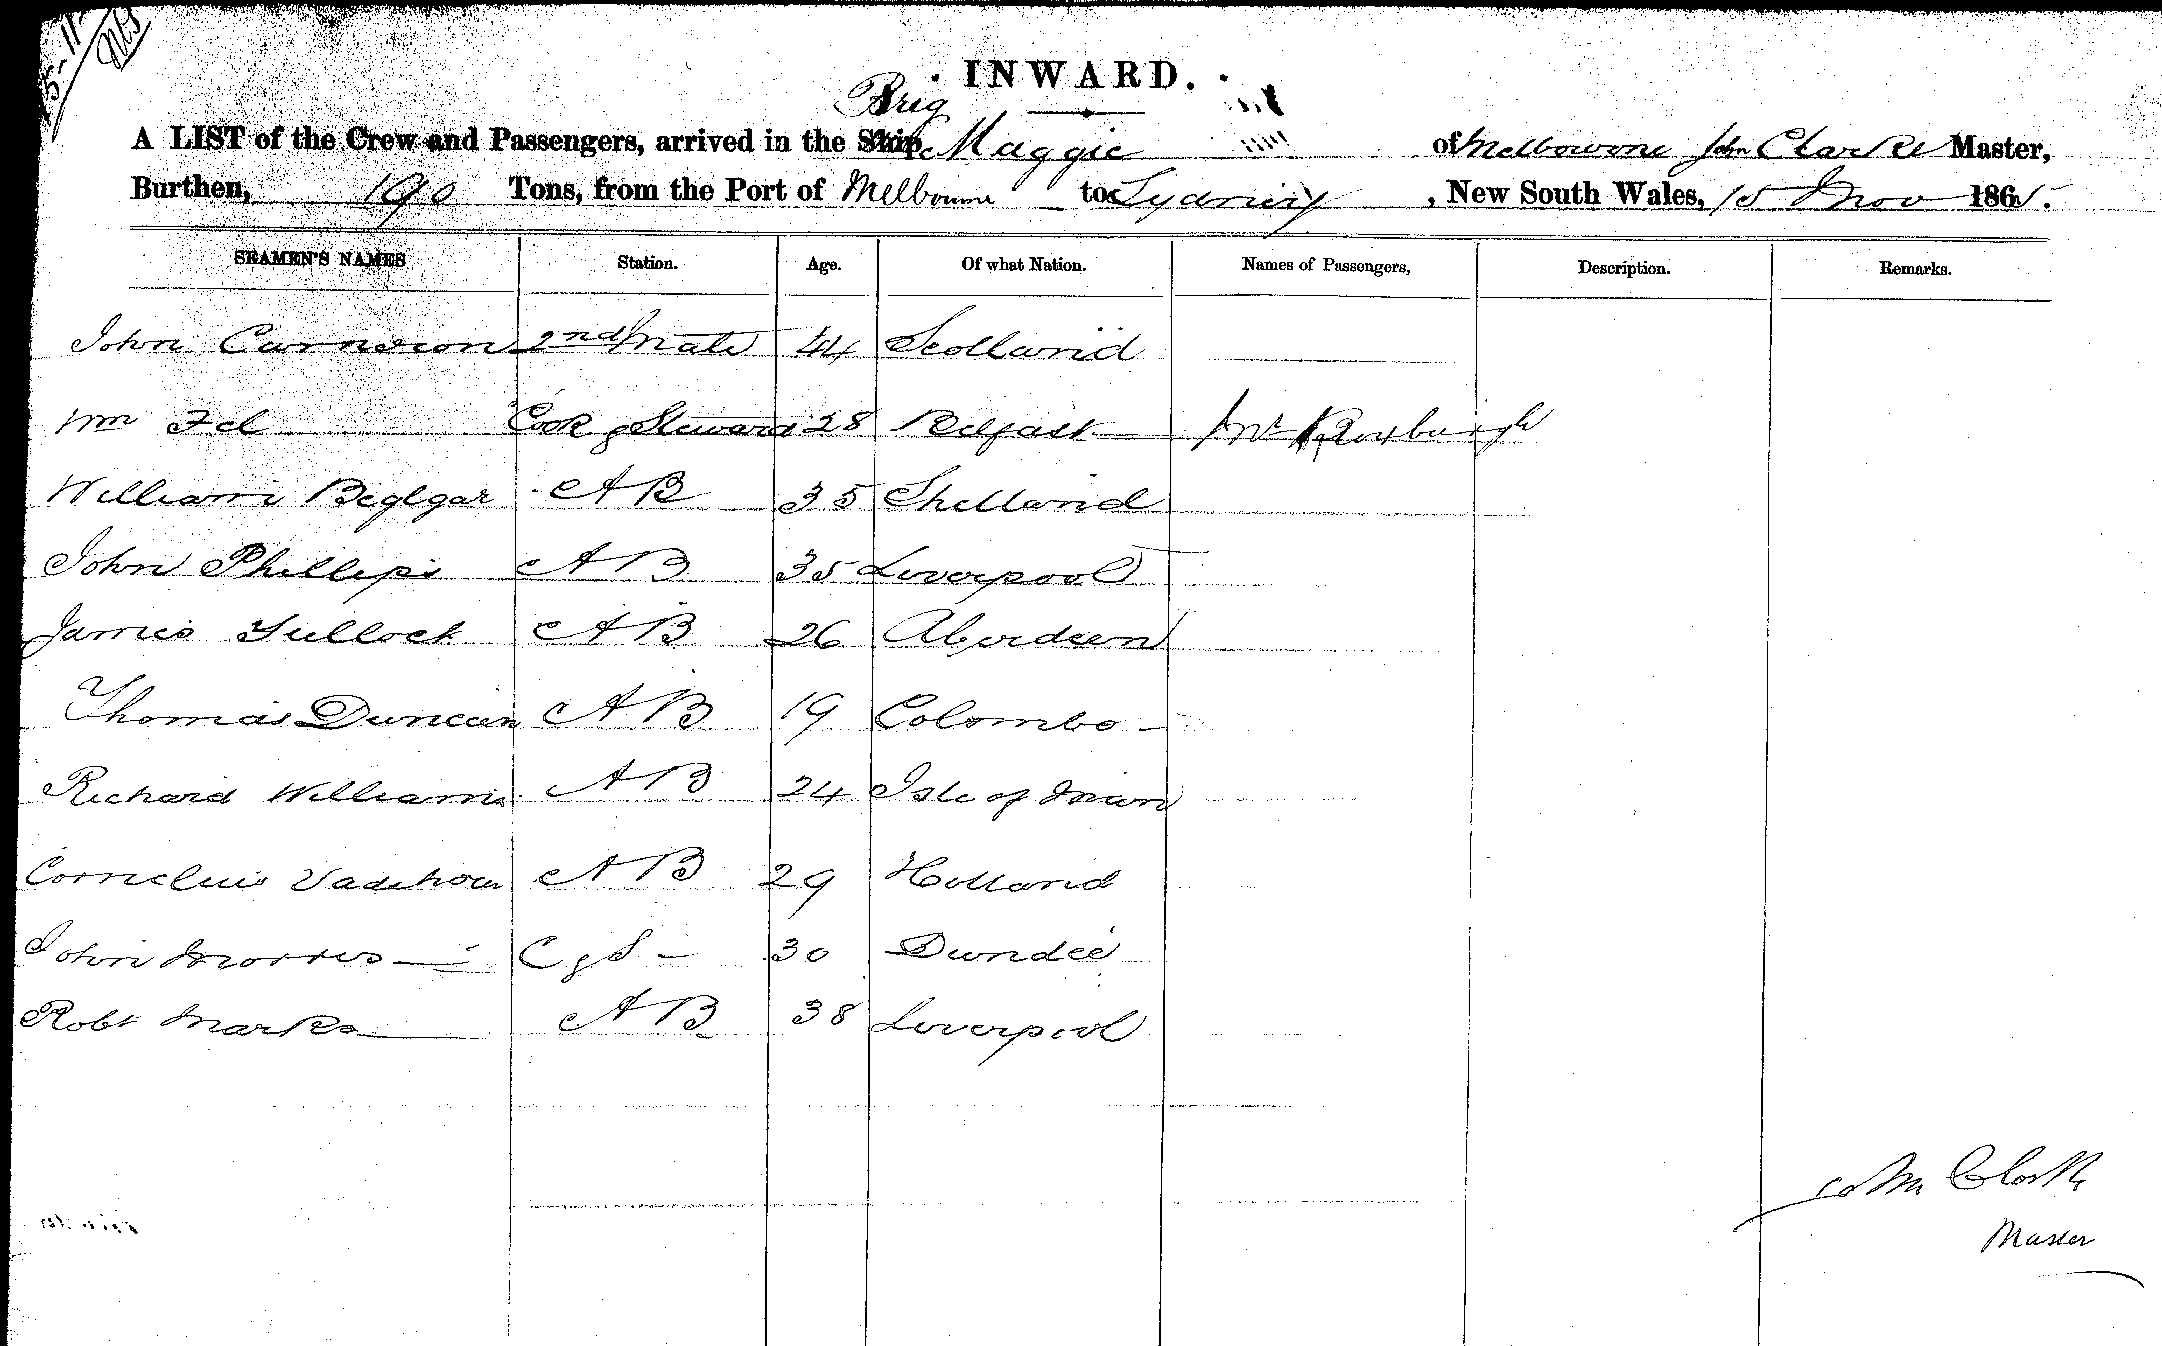 INWARD.
Brig
A LIST of the Crew and Passengers, arrived in the Ship Maggie of Melbourne John Clarke Master,
Burthen, 190 Tons, from the Port of Melbourne to Sydney, New South Wales, 15 Nov 1865.
SEAMEN'S NAMES Station. Age. Of what Nation. Names of Passengers, Description. Remarks.
John Cameron 2nd Mate 44 Scotland
Wm Cook & Steward 28 Belfast Mr Roxburgh
William A B 35 Shetland
John Phillips A B 35 Liverpool
James Tullock A B 26 Aberdeen
Thomas Duncan A B 19 Colombo
Richard Williams A B 24 Isle of Man
Cornelius A B 29 Holland
John Morris C & S 30 Dundee
Robt Marks A B 38 Liverpool
John Clark
Master